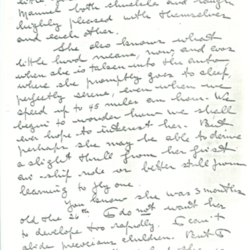 little
Mammy both chuckle and laugh
highly pleased with themselves
and each other.
She also knows what
little hand means now, and coos
when she is taken into the auto
where she promptly goes to sleep
perfectly serene, even when we
speed up to 45 miles an hour. We
begin to wonder how we shall
ever hope to interest her. But
perhaps she may be able to derive
a slight thrill from her first
air ship ride or better still from
learning to fly one.
You know she was 3 months
old the 26th I do not want her
to develop too rapidly I can't
abide precocious children. But I